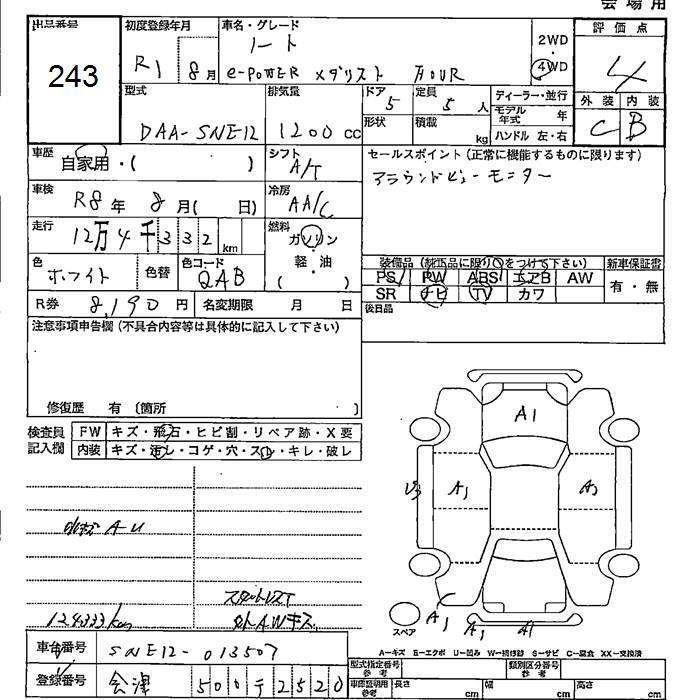 会場用
出品番号
243
初度登録年月
R1 8月
車名・グレード
ノート
e-POWER メダリスト FOUR
2WD
4WD
評価点
4
外装 内装
C B
型式
DAA-SNE12
排気量
1200 cc
ドア
5
定員
5人
ディーラー・並行
モデル年式 年
形状
積載 kg
ハンドル 左・右
車歴
自家用・( )
シフト
A/T
セールスポイント(正常に機能するものに限ります)
アラウンドビューモニター
車検
R8年 8月( 日)
冷房
AA/C
走行
12万4千332 km
燃料
ガソリン
軽・油
( )
色
ホワイト
色替
色コード
QAB
装備品(純正品に限り○をつけて下さい)
新車保証書
PS PW ABS エアB AW
有・無
SR ナビ TV カワ
R券 8,190円
名変期限 月 日
後日品
注意事項申告欄(不具合内容等は具体的に記入して下さい)
修復歴 有 〔箇所 〕
検査員記入欄
FW キズ・飛石・ヒビ割・リペア跡・X要
内装 キズ・汚レ・コゲ・穴・スレ・キレ・破レ
A1
U3
A1
A1
スペア
A1
A1
A1
124333km
A-キズ E-エクボ U-凹み W-補修跡 S-サビ C-腐食 XX-交換済
車台番号
SNE12-013507
登録番号
会津 500 テ 2520
型式指定番号
参考
類別区分番号
参考
車庫証明用
参考
長さ cm
幅 cm
高さ cm